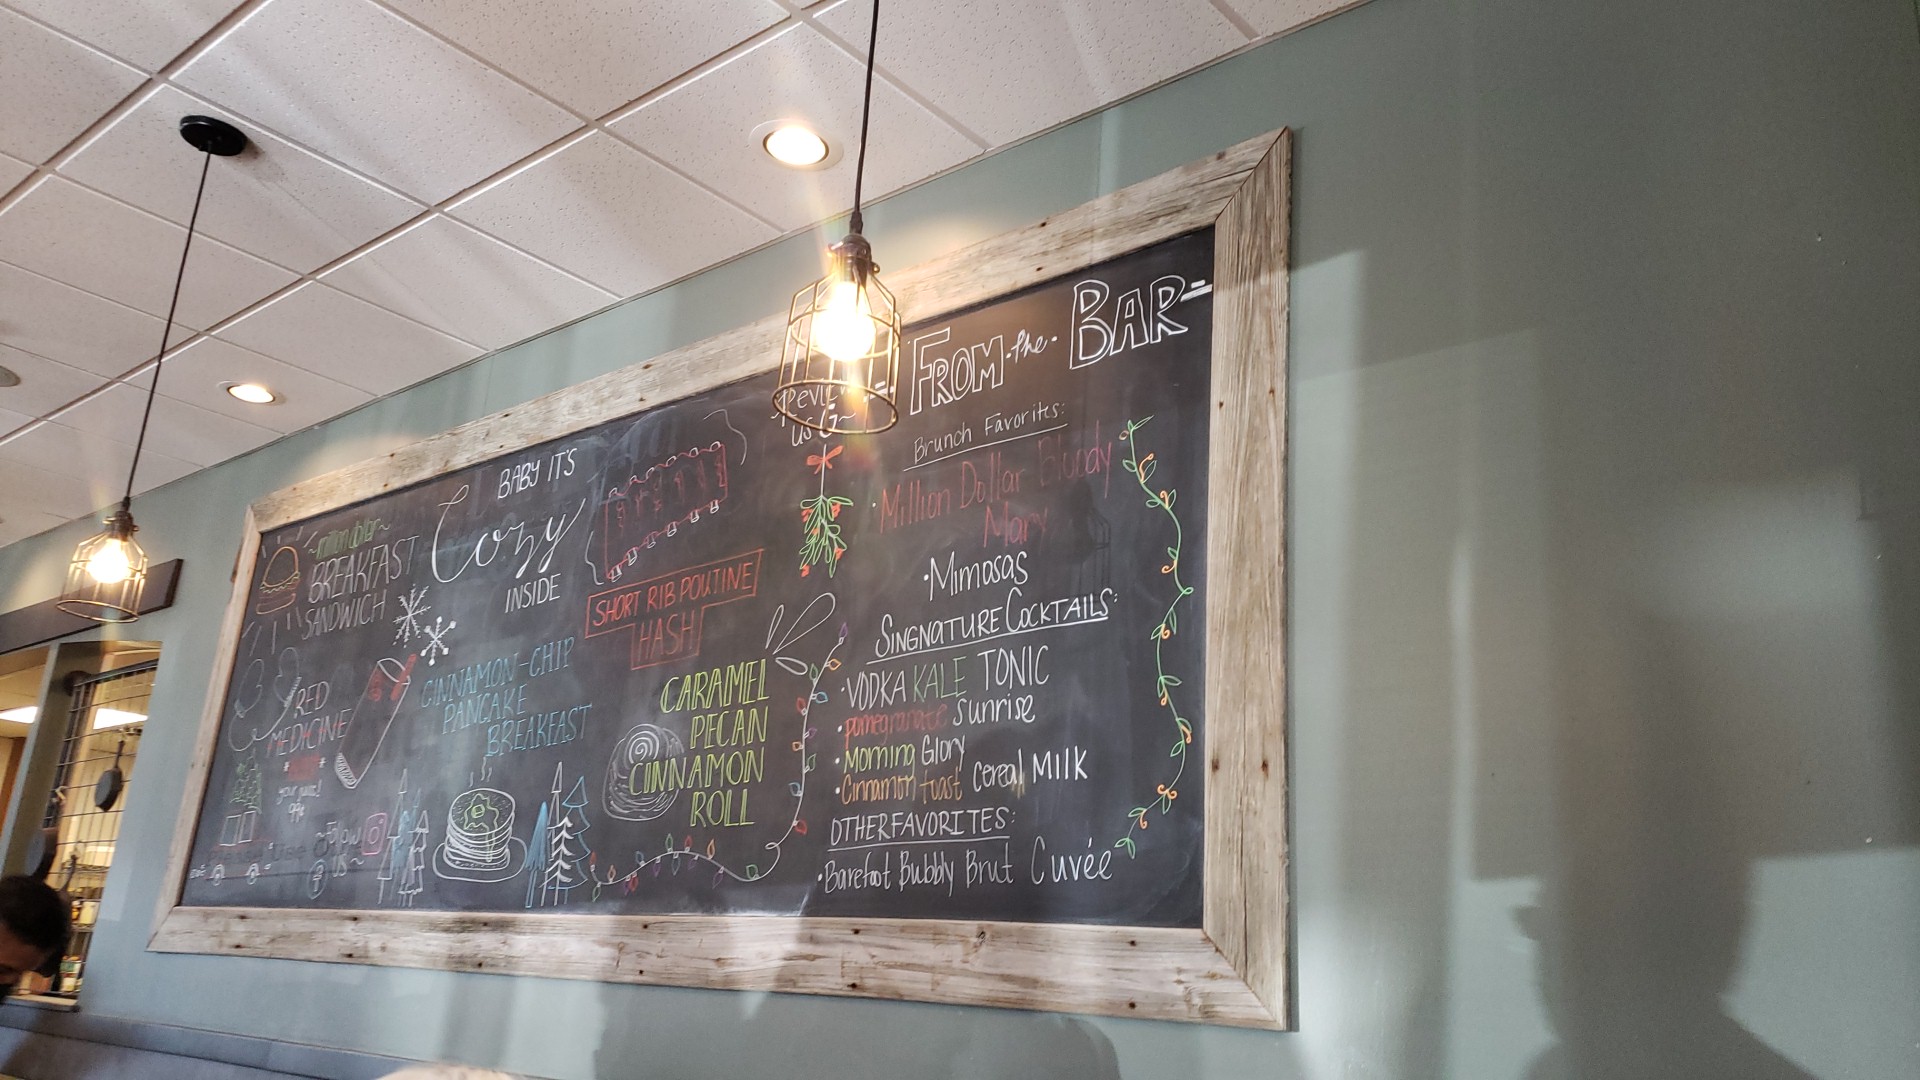 ~million dollar~
BREAKFAST
SANDWICH
BABY IT'S
Cozy
INSIDE
SHORT RIB POUTINE
HASH
RED
MEDICINE
your juice!
99¢
CINNAMON-CHIP
PANCAKE
BREAKFAST
CARAMEL
PECAN
CINNAMON
ROLL
~Follow
us~
US
-FROM·the·BAR-
Brunch Favorites:
·Million Dollar Bloody
Mary
·Mimosas
SINGNATURE COCKTAILS:
·VODKA KALE TONIC
·pomegranate Sunrise
·Morning Glory
·Cinnamon toast Cereal MILK
OTHER FAVORITES:
·Barefoot Bubbly Brut Cuvée